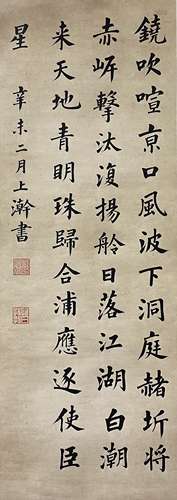 鐃吹喧京口風波下洞庭赭圻將
赤岸擊汰復揚舲日落江湖白潮
来天地青明珠歸合浦應逐使臣
星 辛未二月上澣書